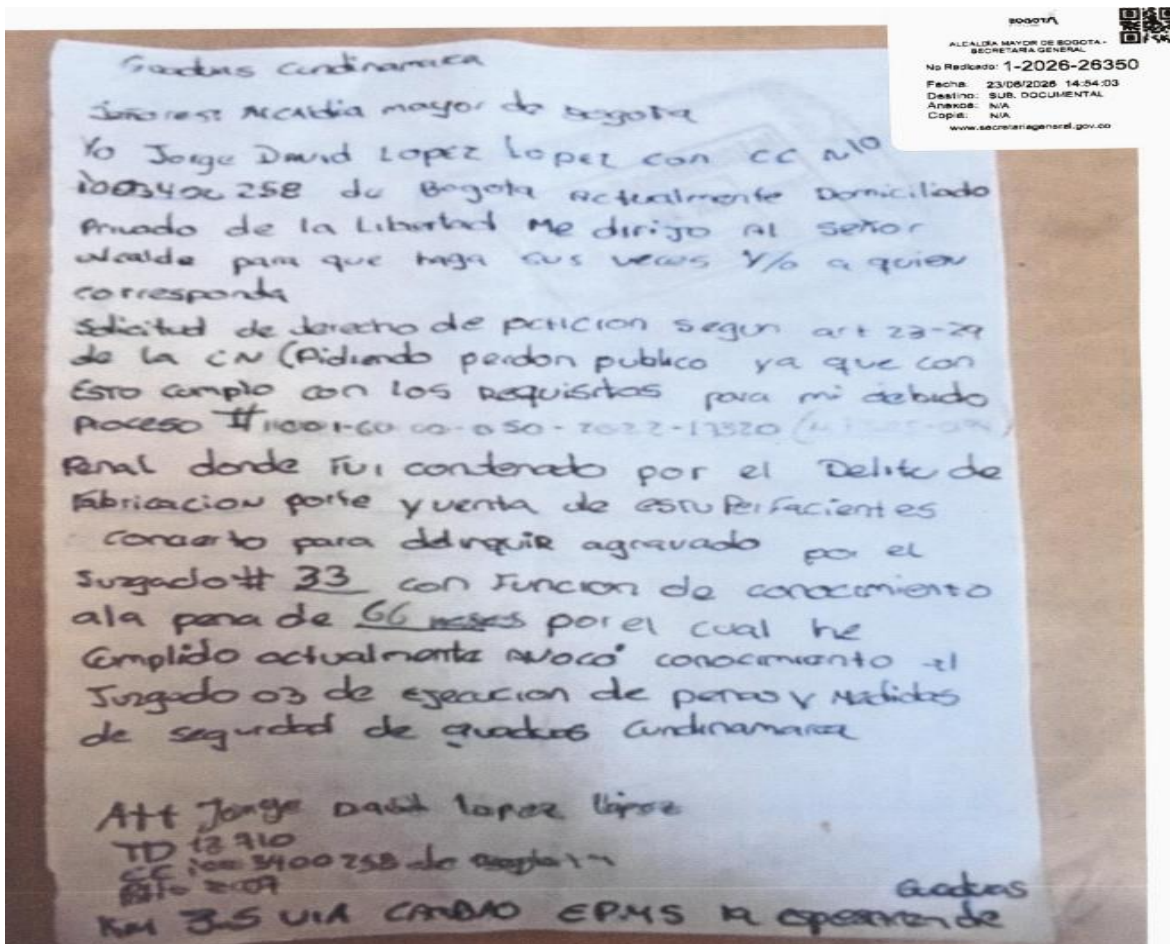 BOGOTÁ
ALCALDÍA MAYOR DE BOGOTA -
SECRETARÍA GENERAL
No Radicado: 1-2026-26350
Fecha: 23/06/2026 14:54:03
Destino: SUB. DOCUMENTAL
Anexos: N/A
Copia: N/A
www.secretariageneral.gov.co
Guaduas Cundinamarca
Señores: Alcaldia mayor de Bogota
Yo Jorge David Lopez Lopez con cc N10
de Bogota Actualmente Domiciliado
Privado de la Libertad Me dirijo Al señor
alcalde para que haga sus veces Y/o a quien
corresponda
Solicitud de derecho de peticion segun art 23-29
de la CN (Pidiendo perdon publico ya que con
Esto cumplo con los Requisitos para mi debido
Proceso #11001-60-00-050-2022-13520
Penal donde Fui condenado por el Delito de
Fabricacion porte y venta de estuperfacientes
concierto para delinquir agravado por el
Juzgado # 33 con Funcion de conocimiento
ala pena de 66 meses por el cual he
Cumplido actualmente Avocó conocimiento el
Juzgado 03 de ejecucion de penas y Medidas
de seguridad de guaduas Cundinamarca
Att Jorge David lopez lópez
TD 12 710
cc de Bogota
Guaduas
Km 3.5 VIA EPMS la esperanza de